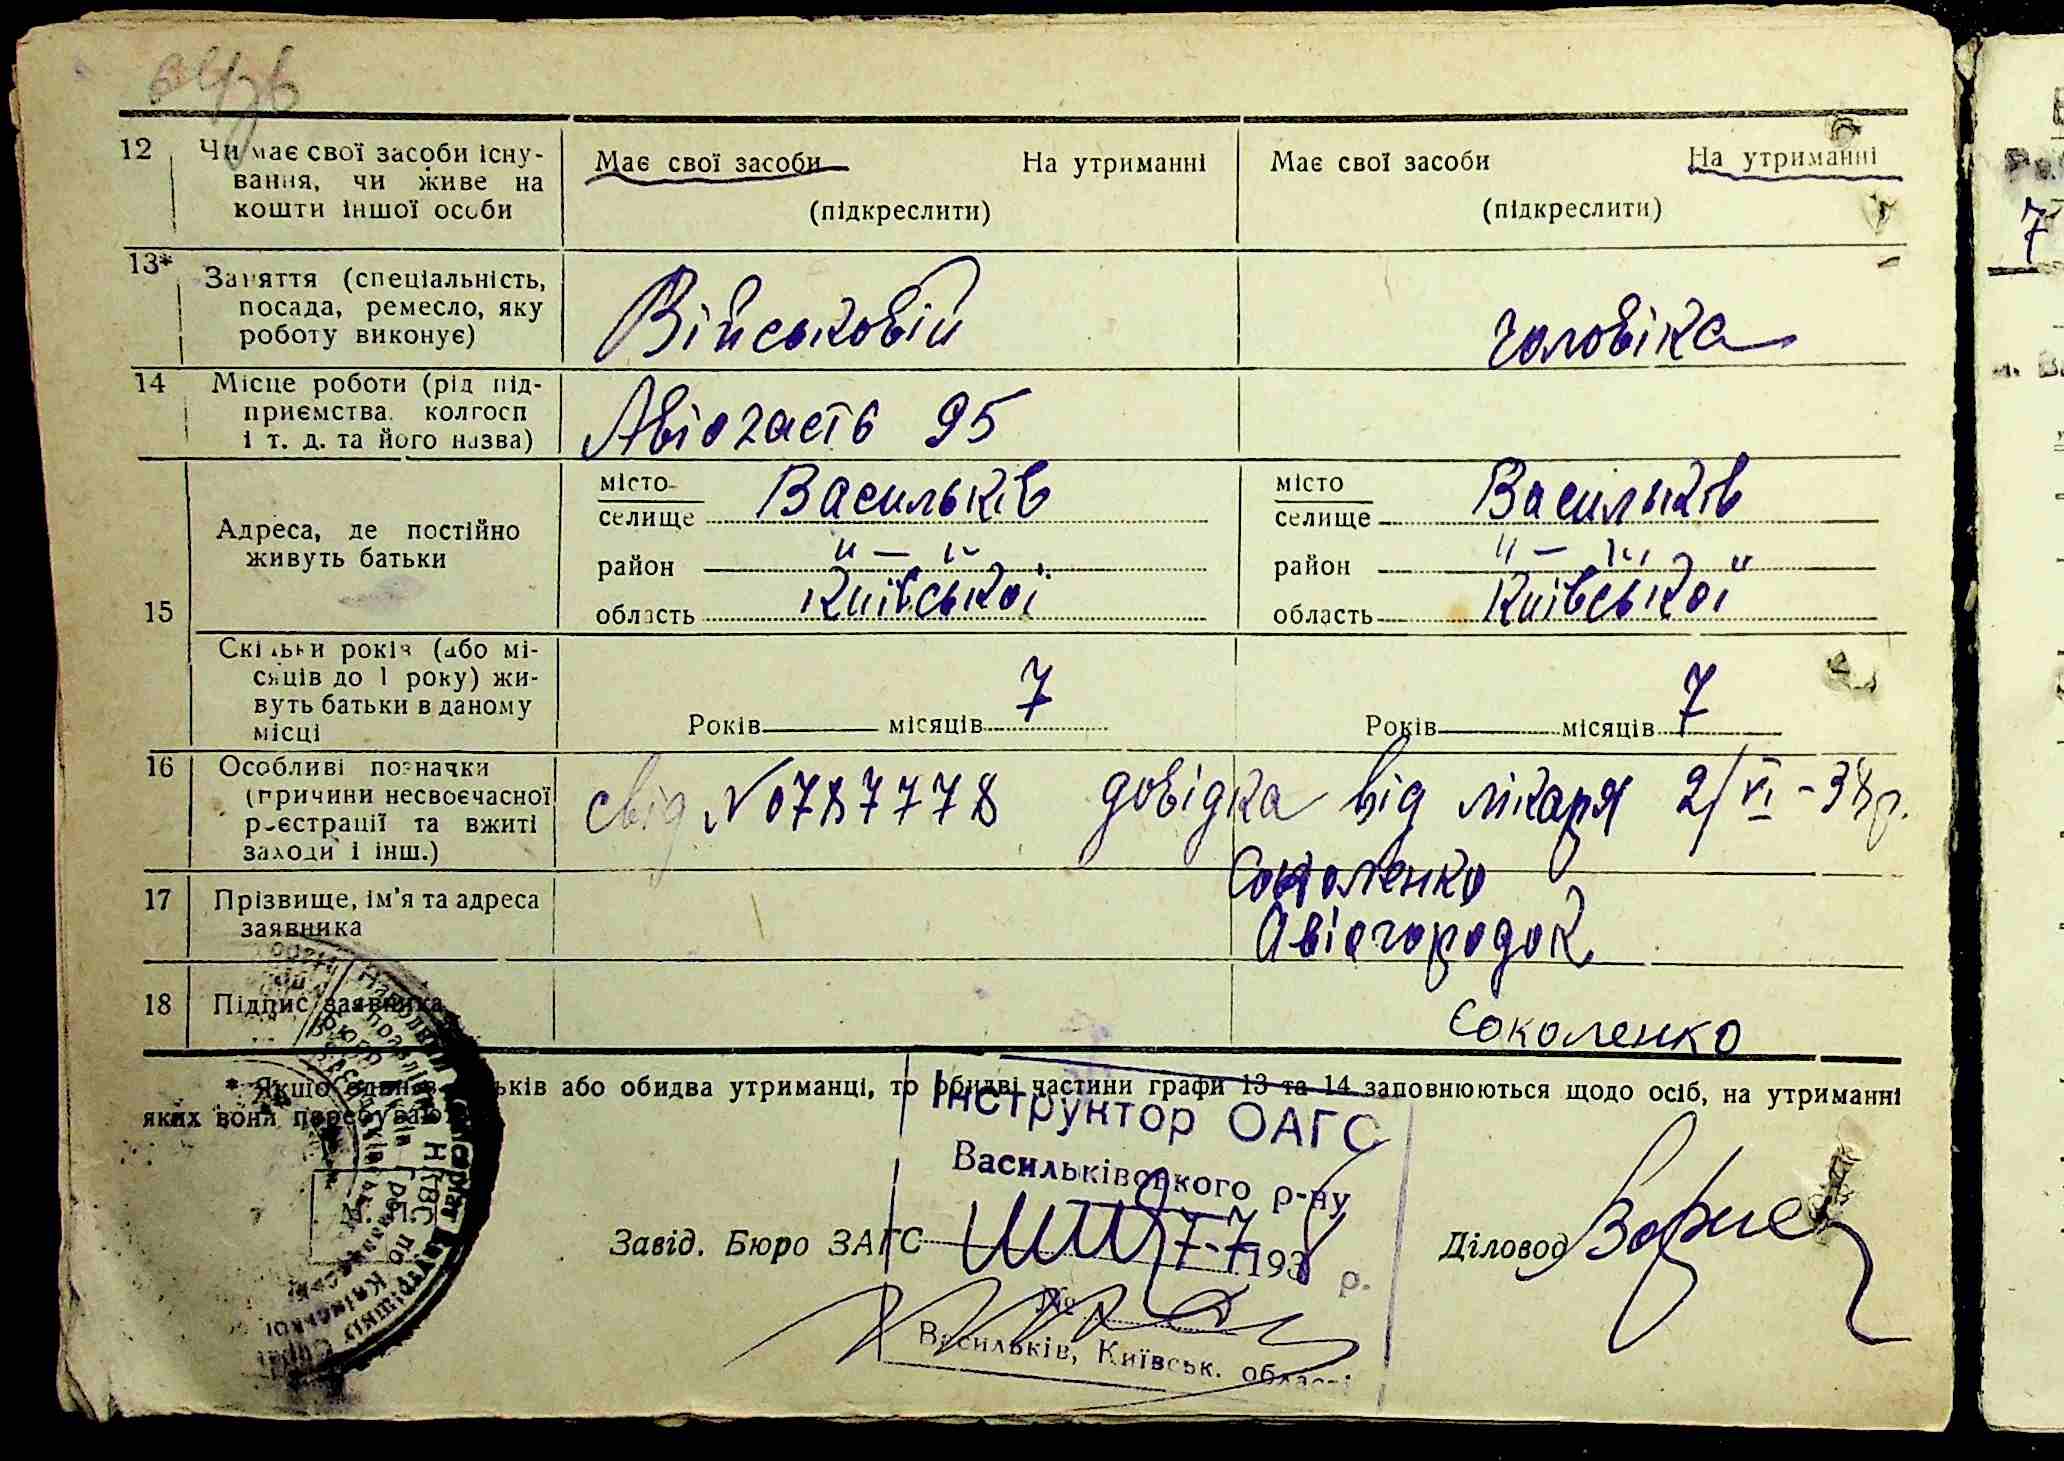 12 Чи має свої засоби існу-
вання, чи живе на
кошти іншої особи
Має свої засоби На утриманні Має свої засоби На утриманні
(підкреслити) (підкреслити)
13* Заняття (спеціальність,
посада, ремесло, яку
роботу виконує)
Військовій чоловіка
14 Місце роботи (рід під-
приємства, колгосп
і т. д. та його назва)
Авіочасть 95
15 Адреса, де постійно
живуть батьки
місто Васильків місто Васильків
селище селище
район " — " район " — "
область Київської область Київської
Скільки років (або мі-
сяців до 1 року) жи-
вуть батьки в даному
місці
Років місяців 7 Років місяців 7
16 Особливі позначки
(причини несвоєчасної
реєстрації та вжиті
заходи і інш.)
свід № 0787778 довідка від лікаря 2/VI-38р.
17 Прізвище, ім'я та адреса
заявника
Соколенко
Авіогородок
18 Підпис заявника
Соколенко
* Якщо один з батьків або обидва утриманці, то обидві частини графи 13 та 14 заповнюються щодо осіб, на утриманні
яких вони перебувають
Інструктор ОАГС
Васильківського р-ну
Завід. Бюро ЗАГС 7-7 1938 р. Діловод
№
Васильків, Київськ. області
М. П.
7